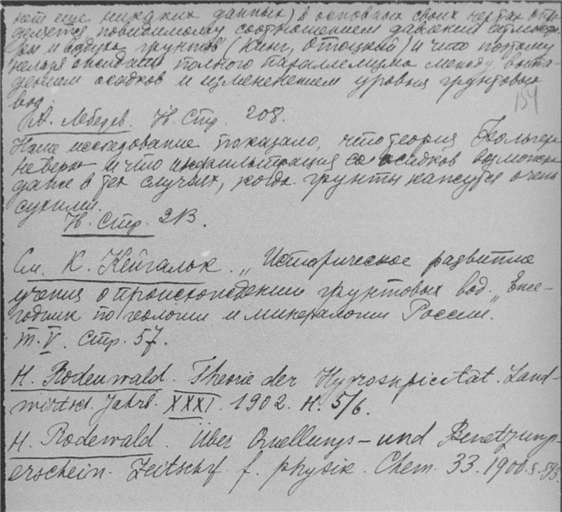 нет еще никаких данных) в основных своих чертах опре-
деляется повидимому соотношением давлений атмосфе-
ры и воздуха грунтов (Кинг, Отоцкий) и что поэтому
нельзя ожидать полного параллелизма между выпа-
дением осадков и изменением уровня грунтовых
вод.
154
А. Лебедев. Н. Стр. 208.
Наше исследование показало, что теория Фольгера
неверна и что инфильтрация осадков возможна
даже в тех случаях, когда грунты кажутся очень
сухими.
Н. Стр. 213.
См. К. Кейльгак. "Историческое развитие
учения о происхождении грунтовых вод". Еже-
годник по геологии и минералогии России.
т. V. Стр. 57.
H. Rodewald. Theorie der Hygroskpicität. Land-
wirtsch. Jahrb. XXXI. 1902. H. 5/6.
H. Rodewald. Über Quellungs- und Benetzungs-
erschein. Zeitschf f. physik. Chem. 33. 1900.